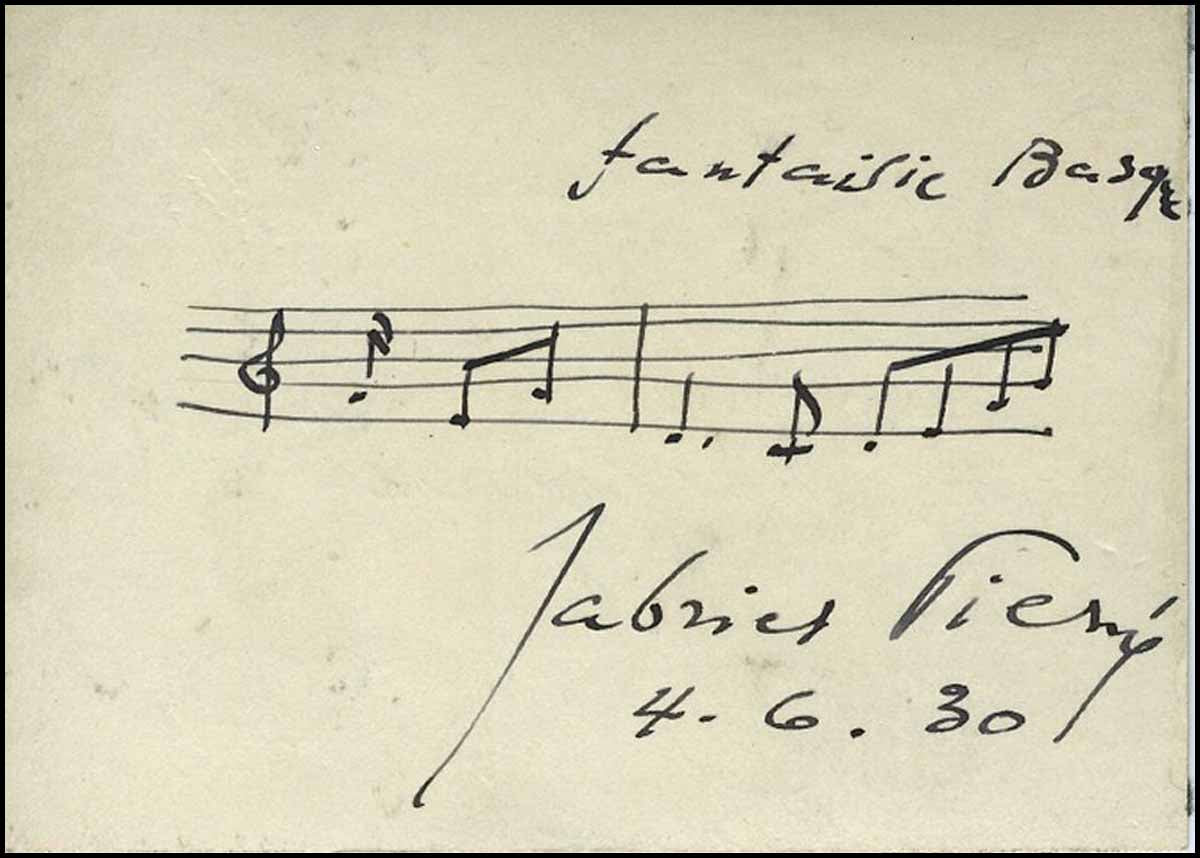 fantaisie Basque
Gabriel Pierné
4. 6. 30